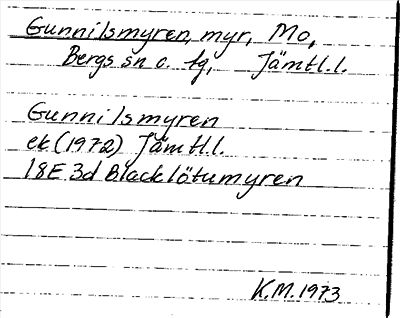 Gunnilsmyren, myr, Mo,
Bergs sn o. tg, Jämtl.l.
Gunnilsmyren
ek (1972) Jämtl.l.
18E 3d Blacklötumyren
K.M. 1973